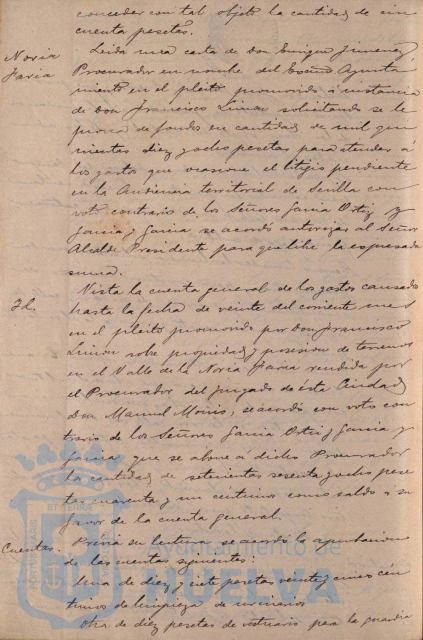 conceder con tal objeto la cantidad de cin
cuenta pesetas.
Noria
Leida una carta de Don Enrique Jimenez
Procurador en nombre del Excmo Ayunta
miento en el pleito promovido á instancia
de Don Francisco Limon solicitando se le
provea de fondos en cantidad de mil qui
nientas diez y ocho pesetas para atender á
los gastos que ocasione el litijio pendiente
en la Audiencia territorial de Sevilla con
voto contrario de los Señores Garcia Ortiz y
Garcia y Garcia se acordó autorizar al Señor
Alcalde Presidente para que libre la expresada
suma.
Id.
Vista la cuenta general de los gastos causados
hasta la fecha de veinte del corriente mes
en el pleito promovido por Don Francisco
Limon sobre propiedad y posesion de terrenos
en el Valle de la Noria rendida por
el Procurador del Juzgado de ésta Ciudad
Don Manuel se acordó con voto con
trario de los Señores Garcia Ortiz y Garcia y
Garcia que se abone á dicho Procurador
la cantidad de setecientas sesenta y ocho pese
tas cuarenta y un centimos como saldo á su
favor de la cuenta general.
Cuentas.
Previa su lectura se acordó la aprobacion
de las cuentas siguientes:
Una de diez y siete pesetas veinte y cinco cén
timos de limpieza de
Otra de diez pesetas de vestuario para la guardia
Ayuntamiento de
HUELVA